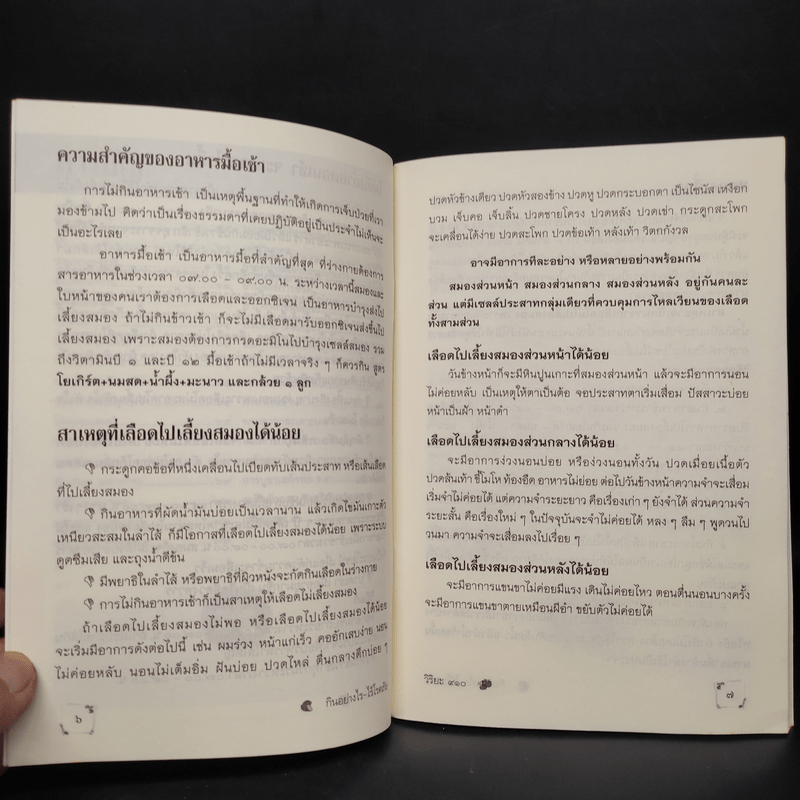 ความสำคัญของอาหารมื้อเช้า
การไม่กินอาหารเช้า เป็นเหตุพื้นฐานที่ทำให้เกิดการเจ็บป่วยที่เรา
มองข้ามไป คิดว่าเป็นเรื่องธรรมดาที่เคยปฏิบัติอยู่เป็นประจำไม่เห็นจะ
เป็นอะไรเลย
อาหารมื้อเช้า เป็นอาหารมื้อที่สำคัญที่สุด ที่ร่างกายต้องการ
สารอาหารในช่วงเวลา ๐๗.๐๐ - ๐๙.๐๐ น. ระหว่างเวลานี้สมองและ
ใบหน้าของคนเราต้องการเลือดและออกซิเจน เป็นอาหารบำรุงส่งไป
เลี้ยงสมอง ถ้าไม่กินข้าวเช้า ก็จะไม่มีเลือดมารับออกซิเจนส่งขึ้นไป
เลี้ยงสมอง เพราะสมองต้องการกรดอะมิโนไปบำรุงเซลล์สมอง รวม
ถึงวิตามินบี ๑ และบี ๑๒ มื้อเช้าถ้าไม่มีเวลาจริง ๆ ก็ควรกิน สูตร
โยเกิร์ต+นมสด+น้ำผึ้ง+มะนาว และกล้วย ๑ ลูก
สาเหตุที่เลือดไปเลี้ยงสมองได้น้อย
กระดูกคอข้อที่หนึ่งเคลื่อนไปเบียดทับเส้นประสาท หรือเส้นเลือด
ที่ไปเลี้ยงสมอง
กินอาหารที่ผัดน้ำมันบ่อยเป็นเวลานาน แล้วเกิดไขมันเกาะตัว
เหนียวสะสมในลำไส้ ก็มีโอกาสที่เลือดไปเลี้ยงสมองได้น้อย เพราะระบบ
ดูดซึมเสีย และถุงน้ำดีข้น
มีพยาธิในลำไส้ หรือพยาธิที่ผิวหนังจะกัดกินเลือดในร่างกาย
การไม่กินอาหารเช้าก็เป็นสาเหตุให้เลือดไม่เลี้ยงสมอง
ถ้าเลือดไปเลี้ยงสมองไม่พอ หรือเลือดไปเลี้ยงสมองได้น้อย
จะเริ่มมีอาการดังต่อไปนี้ เช่น ผมร่วง หน้าแก่เร็ว คออักเสบง่าย นอน
ไม่ค่อยหลับ นอนไม่เต็มอิ่ม ฝันบ่อย ปวดไหล่ ตื่นกลางดึกบ่อย ๆ
๖
กินอย่างไร-ไร้โรคภัย
ปวดหัวข้างเดียว ปวดหัวสองข้าง ปวดหู ปวดกระบอกตา เป็นไซนัส เหงือก
บวม เจ็บคอ เจ็บลิ้น ปวดชายโครง ปวดหลัง ปวดเข่า กระดูกสะโพก
จะเคลื่อนได้ง่าย ปวดสะโพก ปวดข้อเท้า หลังเท้า วิตกกังวล
อาจมีอาการทีละอย่าง หรือหลายอย่างพร้อมกัน
สมองส่วนหน้า สมองส่วนกลาง สมองส่วนหลัง อยู่กันคนละ
ส่วน แต่มีเซลล์ประสาทกลุ่มเดียวที่ควบคุมการไหลเวียนของเลือด
ทั้งสามส่วน
เลือดไปเลี้ยงสมองส่วนหน้าได้น้อย
วันข้างหน้าก็จะมีหินปูนเกาะที่สมองส่วนหน้า แล้วจะมีอาการนอน
ไม่ค่อยหลับ เป็นเหตุให้ตาเป็นต้อ จอประสาทตาเริ่มเสื่อม ปัสสาวะบ่อย
หน้าเป็นฝ้า หน้าดำ
เลือดไปเลี้ยงสมองส่วนกลางได้น้อย
จะมีอาการง่วงนอนบ่อย หรือง่วงนอนทั้งวัน ปวดเมื่อยเนื้อตัว
ปวดส้นเท้า ขี้โมโห ท้องอืด อาหารไม่ย่อย ต่อไปวันข้างหน้าความจำจะเสื่อม
เริ่มจำไม่ค่อยได้ แต่ความจำระยะยาว คือเรื่องเก่า ๆ ยังจำได้ ส่วนความจำ
ระยะสั้น คือเรื่องใหม่ ๆ ในปัจจุบันจะจำไม่ค่อยได้ หลง ๆ ลืม ๆ พูดวนไป
วนมา ความจำจะเสื่อมลงไปเรื่อย ๆ
เลือดไปเลี้ยงสมองส่วนหลังได้น้อย
จะมีอาการแขนขาไม่ค่อยมีแรง เดินไม่ค่อยไหว ตอนตื่นนอนบางครั้ง
จะมีอาการแขนขาตายเหมือนผีอำ ขยับตัวไม่ค่อยได้
วิริยะ ๙๑๐
๗